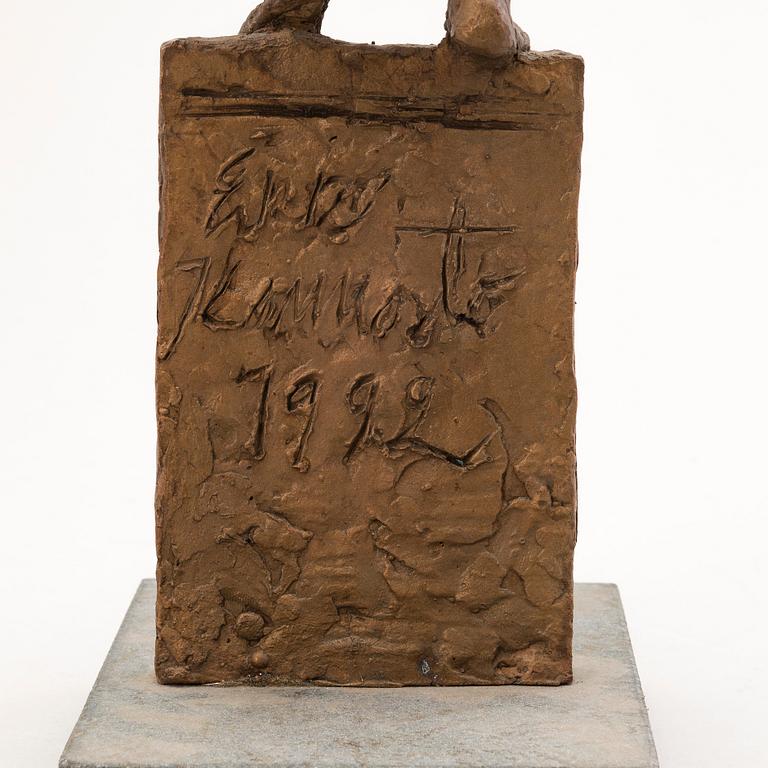 Erkki
Kannosto
1992